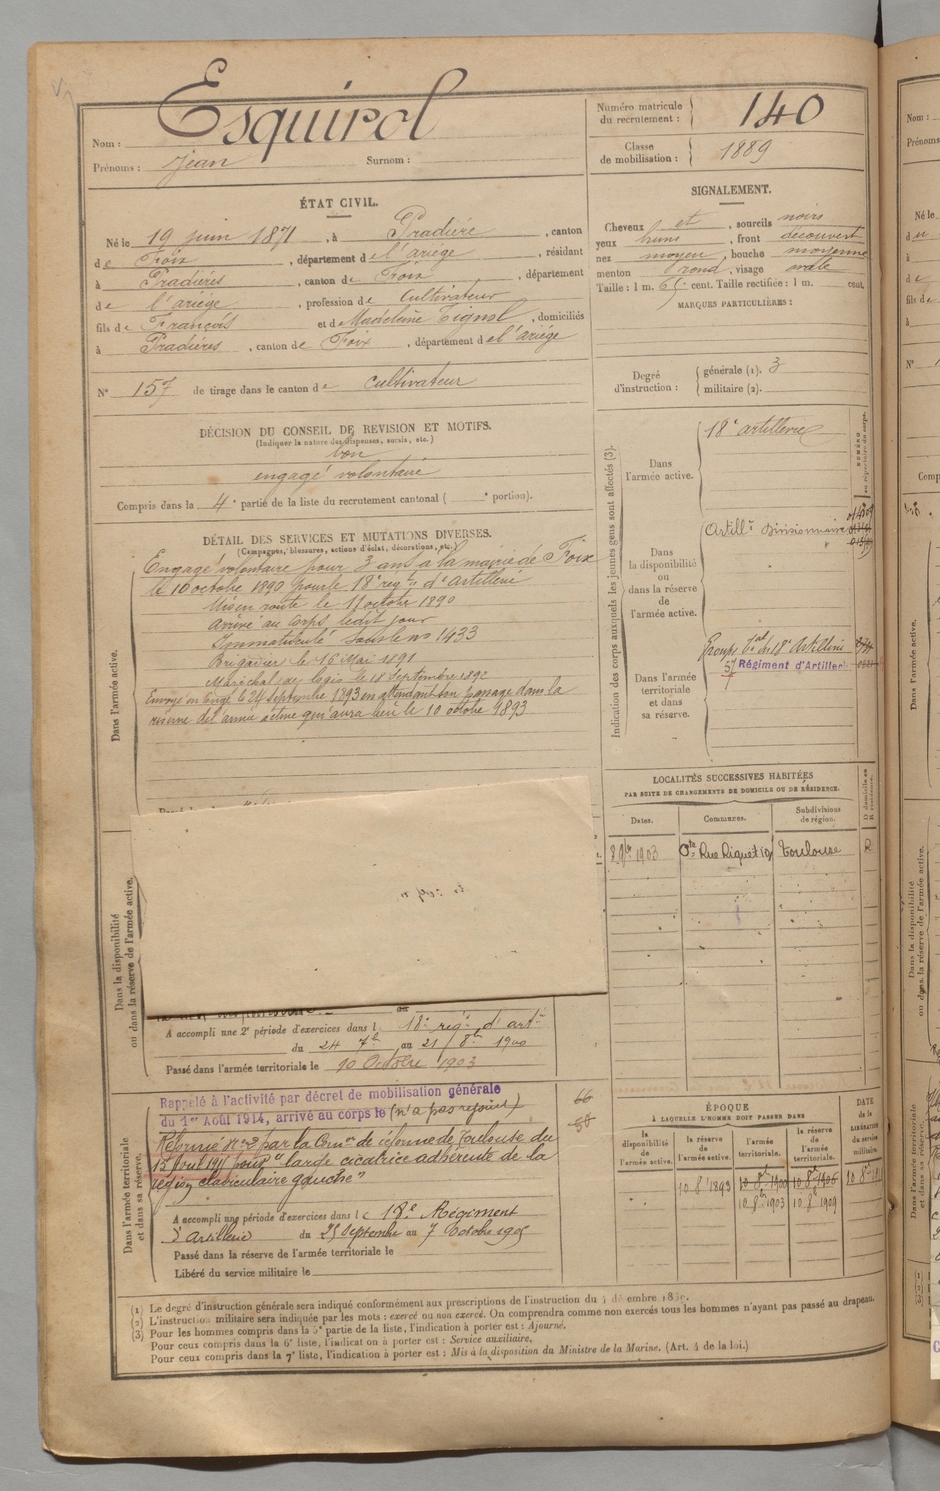 Esquirol
Nom :
Prénoms : Jean Surnom :
Numéro matricule
du recrutement : 140
Classe
de mobilisation : 1889
ÉTAT CIVIL.
Né le 19 juin 1871, à Pradière, canton
de Foix, département de l'ariége, résidant
à Pradiérés, canton de Foix, département
de l'ariége, profession de Cultivateur
fils de François et de Madeleine Tignol, domiciliés
à Pradiéres, canton de Foix, département de l'ariége
N° 157 de tirage dans le canton de Cultivateur
SIGNALEMENT.
Cheveux et, sourcils noirs
yeux bruns, front découvert
nez moyen, bouche moyenne
menton rond, visage ovale
Taille : 1 m. 65 cent. Taille rectifiée : 1 m. cent.
MARQUES PARTICULIÈRES :
Degré
d'instruction :
générale (1). 3
militaire (2).
DÉCISION DU CONSEIL DE REVISION ET MOTIFS.
(Indiquer la nature des dispenses, sursis, etc.)
bon
engagé volontaire
Compris dans la 4e partie de la liste du recrutement cantonal ( e portion).
DÉTAIL DES SERVICES ET MUTATIONS DIVERSES.
(Campagnes, blessures, actions d'éclat, décorations, etc.)
Dans l'armée active.
Engagé volontaire pour 3 ans à la mairie de Foix
le 10 octobre 1890 pour le 18e regt d'Artillerie
Mis en route le 11 octobre 1890
Arrivé au Corps ledit jour
Immatriculé sous le no 1433
Brigadier le 16 Mai 1891
Maréchal des logis le 18 Septembre 1892
Envoyé en congé le 24 septembre 1893 en attendant son passage dans la
réserve de l'armée active qui aura lieu le 10 octobre 1893
Dans la disponibilité
ou dans la réserve de l'armée active.
A accompli une 2e période d'exercices dans l 18e regt d'arte
du 24 7bre au 21 8bre 1900
Passé dans l'armée territoriale le 10 Octobre 1903
Dans l'armée territoriale
et dans sa réserve.
Rappelé à l'activité par décret de mobilisation générale
du 1er Août 1914, arrivé au corps le (n'a pas rejoint)
66
58
Réformé No 2 par la Comon de réforme de Toulouse du
pour "large cicatrice adhérente de la
région claviculaire gauche"
A accompli une période d'exercices dans le 18e Régiment
d'Artillerie du 25 Septembre au 7 Octobre 1905
Passé dans la réserve de l'armée territoriale le
Libéré du service militaire le
Indication des corps auxquels les jeunes gens sont affectés (3).
NUMÉRO
au répertoire du corps.
Dans
l'armée active.
18e artillerie
Dans
la disponibilité
ou
dans la réserve
de
l'armée active.
Artillie Divisionnaire
Dans l'armée
territoriale
et dans
sa réserve.
Groupe tal du 18e Artillerie
57 Régiment d'Artillerie
LOCALITÉS SUCCESSIVES HABITÉES
PAR SUITE DE CHANGEMENTS DE DOMICILE OU DE RÉSIDENCE.
Dates. Communes. Subdivisions
de région.
D domicile ou
R résidence.
8 9bre 1903 Rue Riquet 19 Toulouse R
ÉPOQUE
À LAQUELLE L'HOMME DOIT PASSER DANS
DATE
de la
LIBÉRATION
du service
militaire.
la
disponibilité
de
l'armée active.
la réserve
de
l'armée active.
l'armée
territoriale.
la réserve
de
l'armée
territoriale.
10 8bre 1893 10 8bre 1900 10 8bre 1906
10 8bre 1903 10 8bre 1909
(1) Le degré d'instruction générale sera indiqué conformément aux prescriptions de l'instruction du 4 décembre 1889.
(2) L'instruction militaire sera indiquée par les mots : exercé ou non exercé. On comprendra comme non exercés tous les hommes n'ayant pas passé au drapeau.
(3) Pour les hommes compris dans la 5e partie de la liste, l'indication à porter est : Ajourné.
Pour ceux compris dans la 6e liste, l'indication à porter est : Service auxiliaire.
Pour ceux compris dans la 7e liste, l'indication à porter est : Mis à la disposition du Ministre de la Marine. (Art. 4 de la loi.)